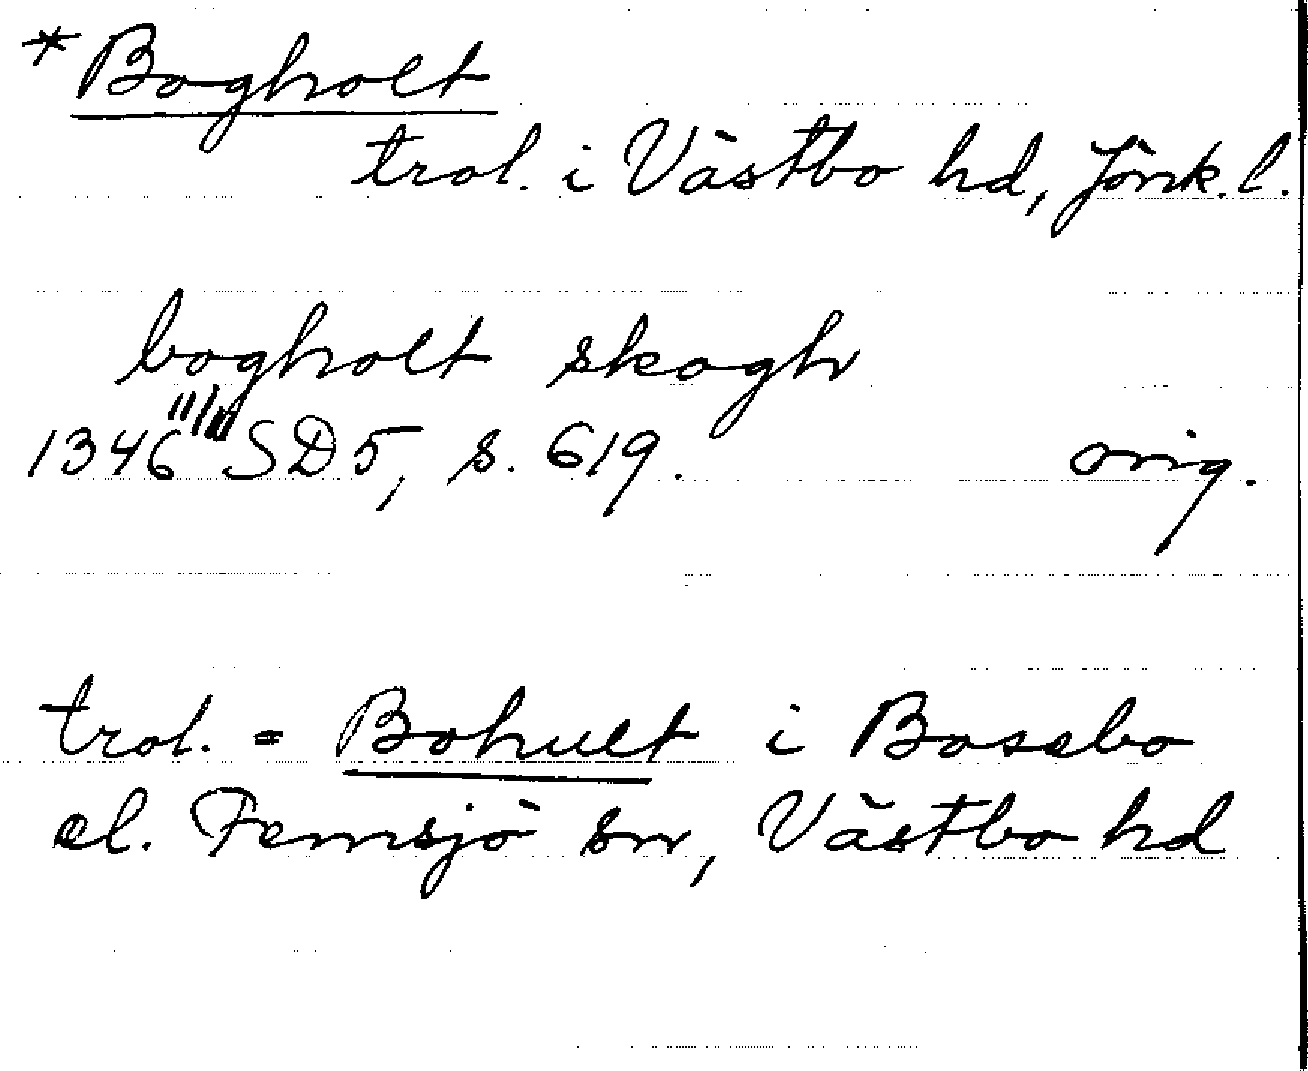 *Bogholt
trol. i Västbo hd, Jönk. l.
bogholt skogh
1346 SD 5, s. 619. orig.
trol. = Bohult i Bosebo
el. Femsjö sn, Västbo hd